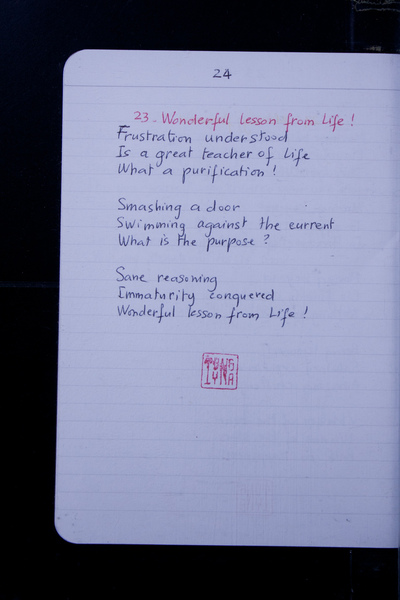 24
23. Wonderful lesson from Life !
Frustration understood
Is a great teacher of Life
What a purification !
Smashing a door
Swimming against the current
What is the purpose ?
Sane reasoning
Immaturity conquered
Wonderful lesson from Life !